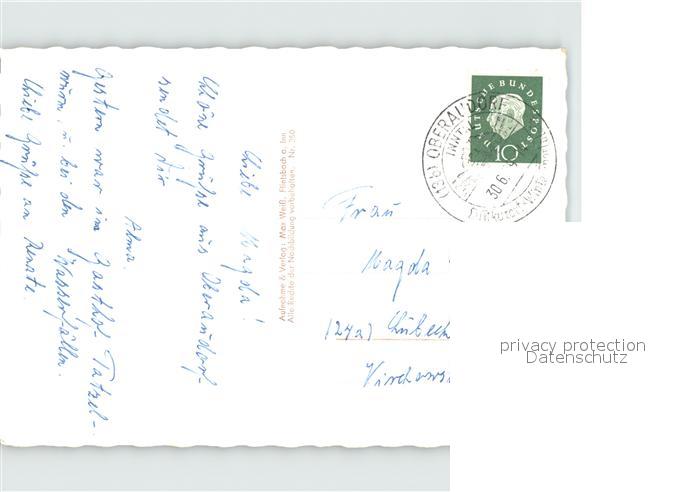 Liebe Magda!
Schöne Grüße aus Oberaudorf
sendet Dir
Alma.
Gestern war im Gasthof Tatzel-
wurm u. bei den Wasserfällen.
Liebe Grüße an Renate.
Aufnahme & Verlag: Max Weiß, Flintsbach a. Inn
Alle Rechte der Nachbildung vorbehalten. Nr. 350
DEUTSCHE BUNDESPOST
10
(13b) OBERAUDORF
INNTAL
30.6.
Frau
Magda
(24a) Lübeck
privacy protection
Datenschutz